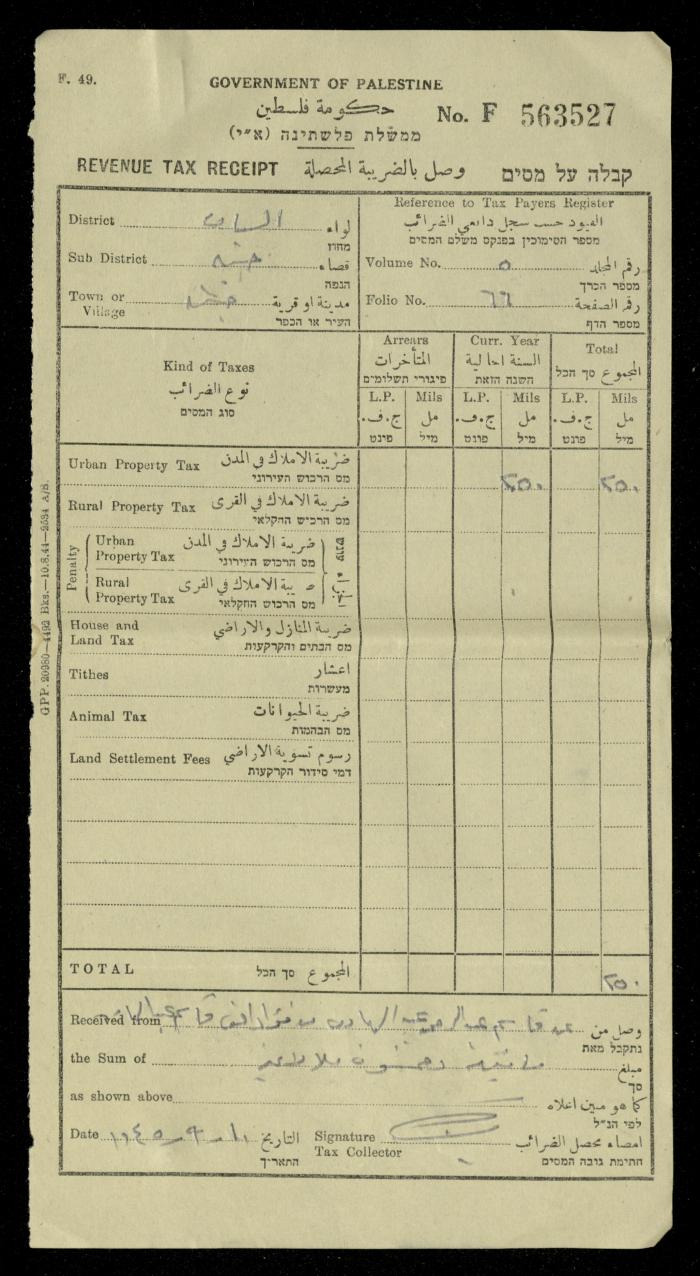 F. 49.
GOVERNMENT OF PALESTINE
حكومة فلسطين
No. F 563527
ממשלת פלשתינה (א״י)
REVENUE TAX RECEIPT وصل بالضريبة المحصلة קבלה על מסים
District لواء
מחוז
Sub District جنين قضاء
הנפה
Town or Village جنين مدينة او قرية
העיר או הכפר
Reference to Tax Payers Register
القيود حسب سجل دافعي الضرائب
מספר הסימוכין בפנקס משלם המסים
Volume No. ٥ رقم المجلد
מספר הכרך
Folio No. ٦٦ رقم الصفحة
מספר הדף
Kind of Taxes
نوع الضرائب
סוג המסים
Arrears
المتأخرات
פיגורי תשלומים
Curr. Year
السنة الحالية
השנה הזאת
Total
المجموع סך הכל
L.P. Mils L.P. Mils L.P. Mils
ج.ف. مل ج.ف. مل ج.ف. مل
פונט מיל פונט מיל פונט מיל
Urban Property Tax ضريبة الاملاك في المدن ٢٥٠ ٢٥٠
מס הרכוש העירוני
Rural Property Tax ضريبة الاملاك في القرى
מס הרכוש החקלאי
Penalty
Urban Property Tax ضريبة الاملاك في المدن
מס הרכוש העירוני
Rural Property Tax ضريبة الاملاك في القرى
מס הרכוש החקלאי
עונש
House and Land Tax ضريبة المنازل والاراضي
מס הבתים והקרקעות
Tithes اعشار
מעשרות
Animal Tax ضريبة الحيوانات
מס הבהמות
Land Settlement Fees رسوم تسوية الاراضي
דמי סידור הקרקעות
TOTAL المجموع סך הכל ٢٥٠
Received from قاسم عبد الهادي وصل من
נתקבל מאת
the Sum of مبلغ
סך
as shown above كما هو مبين اعلاه
לפי הנ״ל
Date ١٩٤٥ التاريخ
התאריך
Signature Tax Collector امضاء محصل الضرائب
חתימת גובה המסים
GPP. 20980—4492 Bks.—10.8.44—2534 A/B.